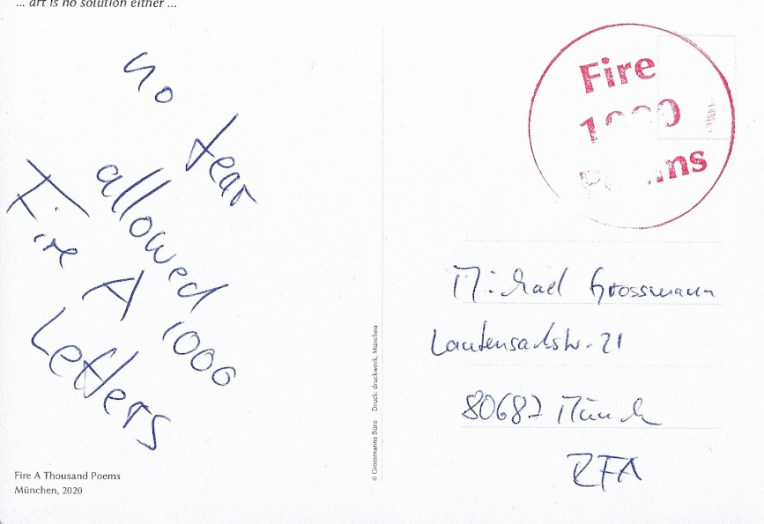 ... art is no solution either ...
no fear
allowed
Fire A 1000
Letters
Fire A Thousand Poems
München, 2020
© Grossmanns Büro Druck: druckwerk, München
Fire
1000
Poems
Michael Grossmann
Lautensackstr. 21
80687 Münch
RFA